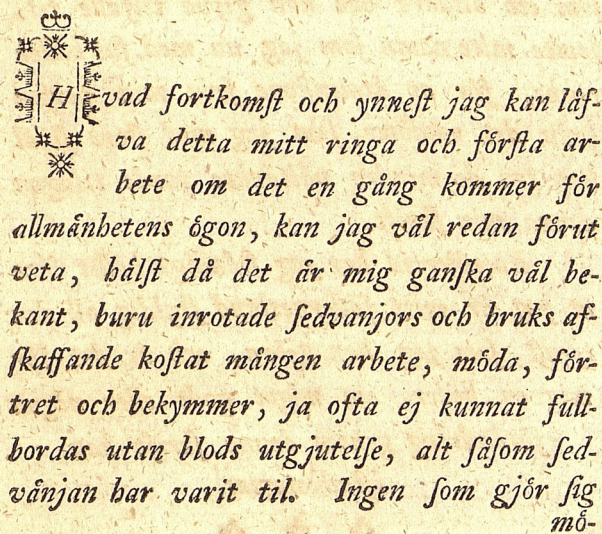 Hvad fortkomſt och ynneſt jag kan låf-
va detta mitt ringa och förſta ar-
bete om det en gång kommer för
allmänhetens ögon, kan jag väl redan förut
veta, hälſt då det är mig ganſka väl be-
kant, huru inrotade ſedvanjors och bruks af-
ſkaffande koſtat mången arbete, möda, för-
tret och bekymmer, ja ofta ej kunnat full-
bordas utan blods utgjutelſe, alt ſåſom ſed-
vänjan har varit til. Ingen ſom gjör ſig
mö-